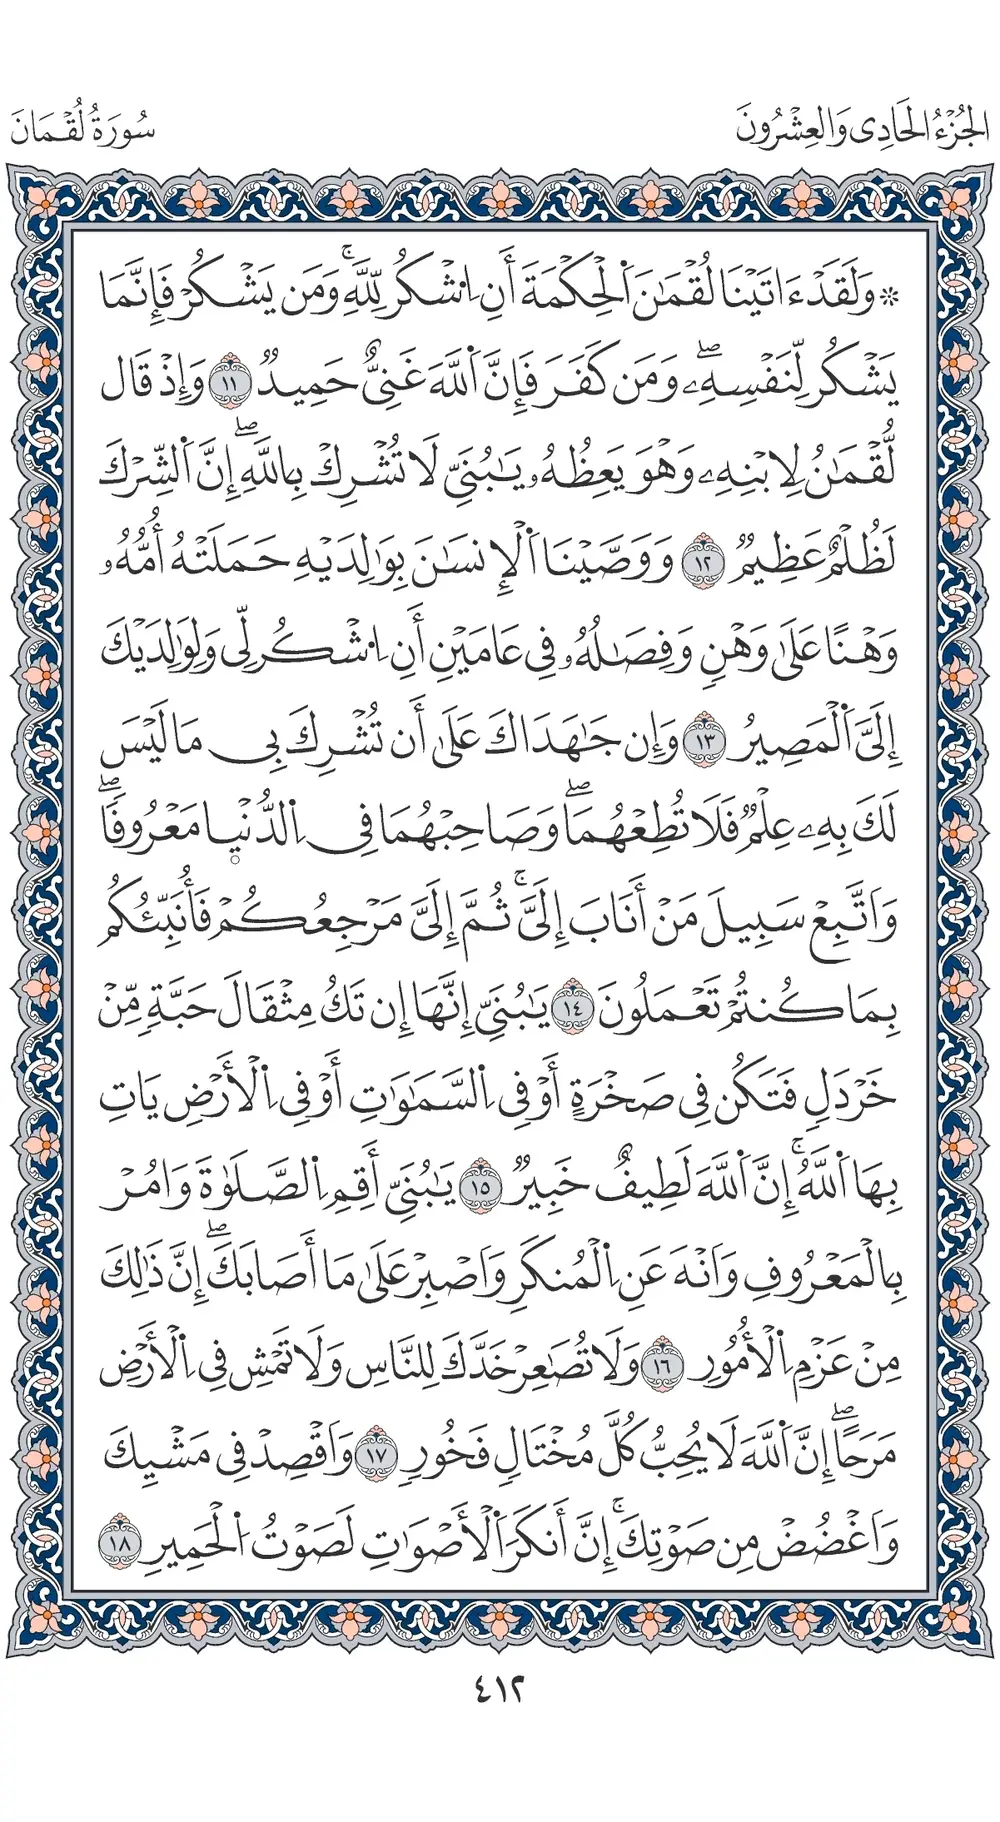 الجُزْءُ الحَادِى وَالعِشْرُونَ
سُورَةُ لُقْمَانَ
۞ وَلَقَدْ ءَاتَيْنَا لُقْمَٰنَ اَ۬لْحِكْمَةَ أَنِ اِ۟شْكُر لِّلهِۚ وَمَن يَشْكُرْ فَإِنَّمَا
يَشْكُر لِّنَفْسِهِۦۖ وَمَن كَفَرَ فَإِنَّ اَ۬للَّهَ غَنِىٌّ حَمِيدٞ ١١ وَإِذْ قَال
لُّقْمَٰنُ لِابْنِهِۦ وَهْوَ يَعِظُهُۥ يَٰبُنَىِّ لَا تُشْرِكْ بِاللَّهِۖ إِنَّ اَ۬لشِّرْكَ
لَظُلْمٌ عَظِيمٞ ١٢ وَوَصَّيْنَا اَ۬لْإِنسَٰنَ بِوَٰلِدَيْهِ حَمَلَتْهُ أُمُّهُۥ
وَهْنًا عَلَىٰ وَهْنٖ وَفِصَٰلُهُۥ فِى عَامَيْنِ أَنِ اِ۟شْكُر لِّى وَلِوَٰلِدَيْكَ
إِلَىَّ اَ۬لْمَصِيرُ ١٣ وَإِن جَٰهَدَاكَ عَلَىٰ أَن تُشْرِكَ بِى مَا لَيْسَ
لَكَ بِهِۦ عِلْمٞ فَلَا تُطِعْهُمَاۖ وَصَاحِبْهُمَا فِى اِ۬لدُّنْي۪ا مَعْرُوفٗاۖ
وَاتَّبِعْ سَبِيلَ مَنْ أَنَابَ إِلَىَّۚ ثُمَّ إِلَىَّ مَرْجِعُكُمْ فَأُنَبِّئُكُم
بِمَا كُنتُمْ تَعْمَلُونَ ١٤ يَٰبُنَىِّ إِنَّهَا إِن تَكُ مِثْقَالَ حَبَّةٖ مِّنْ
خَرْدَلٖ فَتَكُن فِى صَخْرَةٍ أَوْ فِى اِ۬لسَّمَٰوَٰتِ أَوْ فِى اِ۬لْأَرْضِ يَاتِ
بِهَا اَ۬للَّهُۚ إِنَّ اَ۬للَّهَ لَطِيفٌ خَبِيرٞ ١٥ يَٰبُنَىِّ أَقِمِ اِ۬لصَّلَوٰةَ وَامُرْ
بِالْمَعْرُوفِ وَانْهَ عَنِ اِ۬لْمُنكَرِ وَاصْبِرْ عَلَىٰ مَا أَصَابَكَۖ إِنَّ ذَٰلِكَ
مِنْ عَزْمِ اِ۬لْأُمُورِ ١٦ وَلَا تُصَٰعِرْ خَدَّكَ لِلنَّاسِ وَلَا تَمْشِ فِى اِ۬لْأَرْضِ
مَرَحًاۖ إِنَّ اَ۬للَّهَ لَا يُحِبُّ كُلَّ مُخْتَالٖ فَخُورٖ ١٧ وَاقْصِدْ فِى مَشْيِكَ
وَاغْضُضْ مِن صَوْتِكَۚ إِنَّ أَنكَرَ اَ۬لْأَصْوَٰتِ لَصَوْتُ اُ۬لْحَمِيرِ ١٨
٤١٢